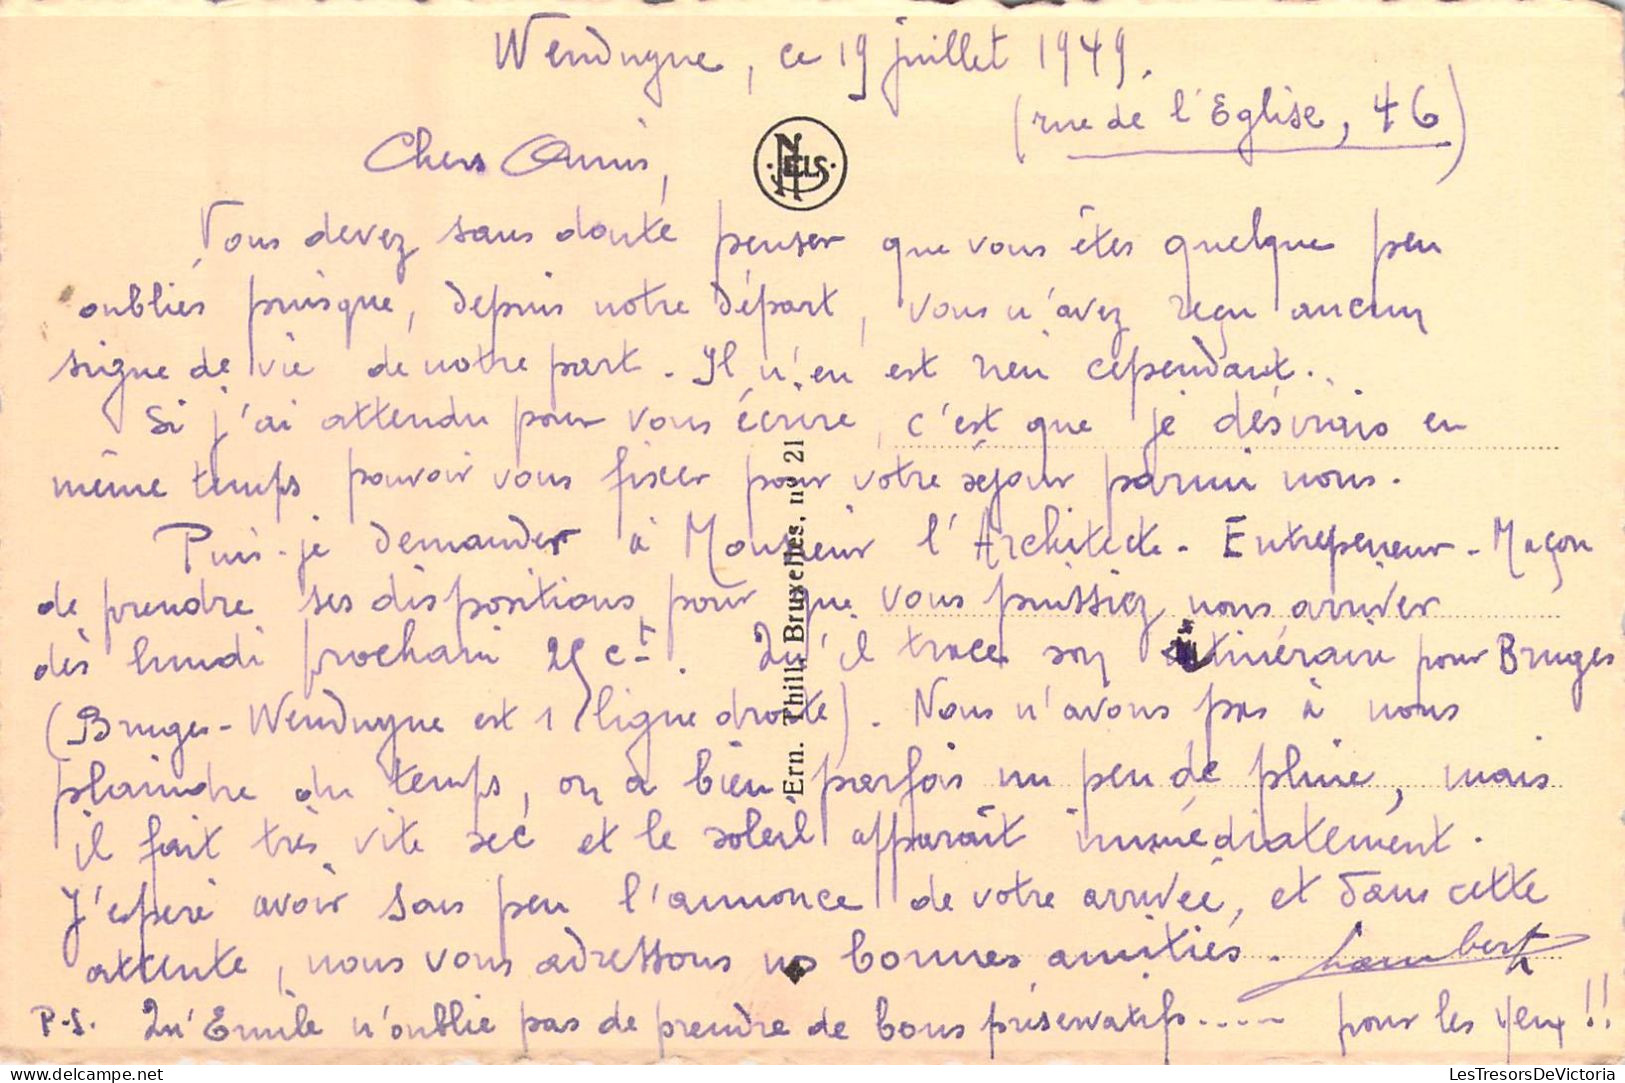 Wenduyne, ce 19 juillet 1949.
(rue de l'Eglise, 46)
Chers Amis,
NELS
Vous devez sans doute penser que vous êtes quelque peu
oubliés puisque, depuis notre départ, vous n'avez reçu aucun
signe de vie de notre part. Il n'en est rien cependant.
Si j'ai attendu pour vous écrire, c'est que je désirais en
même temps pouvoir vous fixer pour votre séjour parmi nous.
Puis-je demander à Monsieur l'Architecte-Entrepreneur-Maçon
de prendre ses dispositions pour que vous puissiez nous arriver
dès lundi prochain 25 ct. Qu'il trace son itinéraire pour Bruges
(Bruges-Wenduyne est 1 ligne droite). Nous n'avons pas à nous
plaindre du temps, on a bien parfois un peu de pluie, mais
il fait très vite sec et le soleil apparaît immédiatement.
J'espère avoir sous peu l'annonce de votre arrivée, et dans cette
attente, nous vous adressons nos bonnes amitiés. Lambert
P.S. Qu'Emile n'oublie pas de prendre de bons préservatifs..... pour les yeux!!
Ern. Thill, Bruxelles, nº 21
LesTresorsDeVictoria